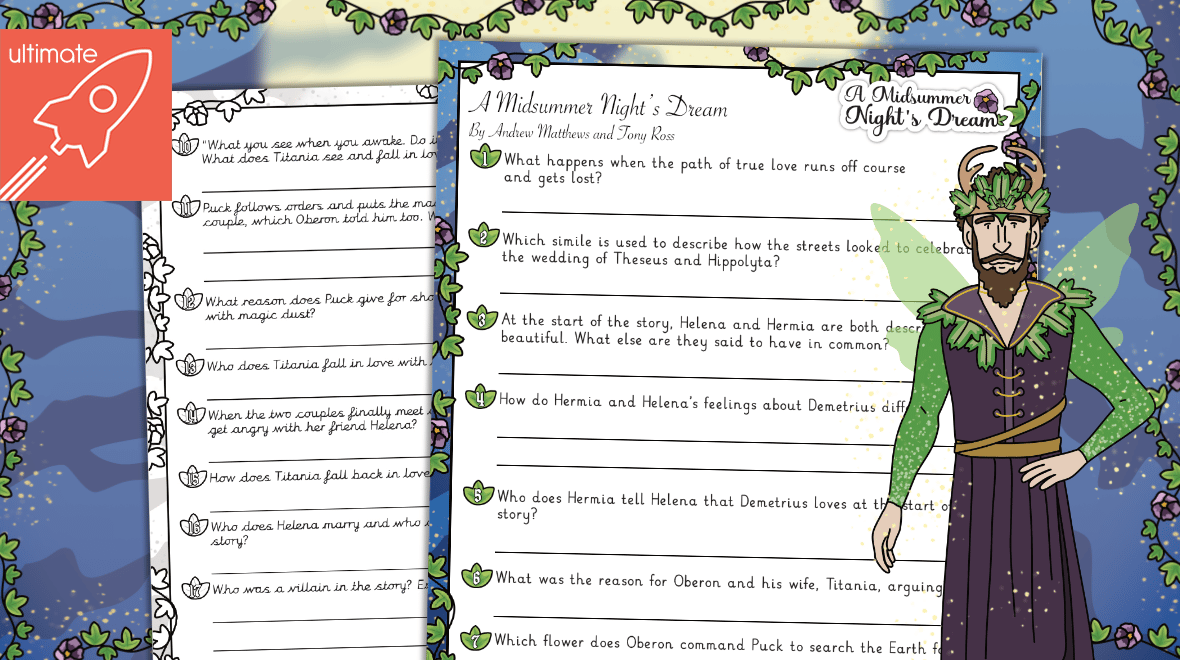 ultimate
10
"What you see when you awake. Do i
What does Titania see and fall in lov
11
Puck follows orders and puts the ma
couple, which Oberon told him too. W
12
What reason does Puck give for sho
with magic dust?
13
Who does Titania fall in love with
14
When the two couples finally meet
get angry with her friend Helena?
15
How does Titania fall back in love
16
Who does Helena marry and who
story?
17
Who was a villain in the story? Ex
A Midsummer Night's Dream
By Andrew Matthews and Tony Ross
A Midsummer
Night's Dream
1
What happens when the path of true love runs off course
and gets lost?
2
Which simile is used to describe how the streets looked to celebrat
the wedding of Theseus and Hippolyta?
3
At the start of the story, Helena and Hermia are both descr
beautiful. What else are they said to have in common?
4
How do Hermia and Helena's feelings about Demetrius diff
5
Who does Hermia tell Helena that Demetrius loves at the start of
story?
6
What was the reason for Oberon and his wife, Titania, arguing
7
Which flower does Oberon command Puck to search the Earth fo